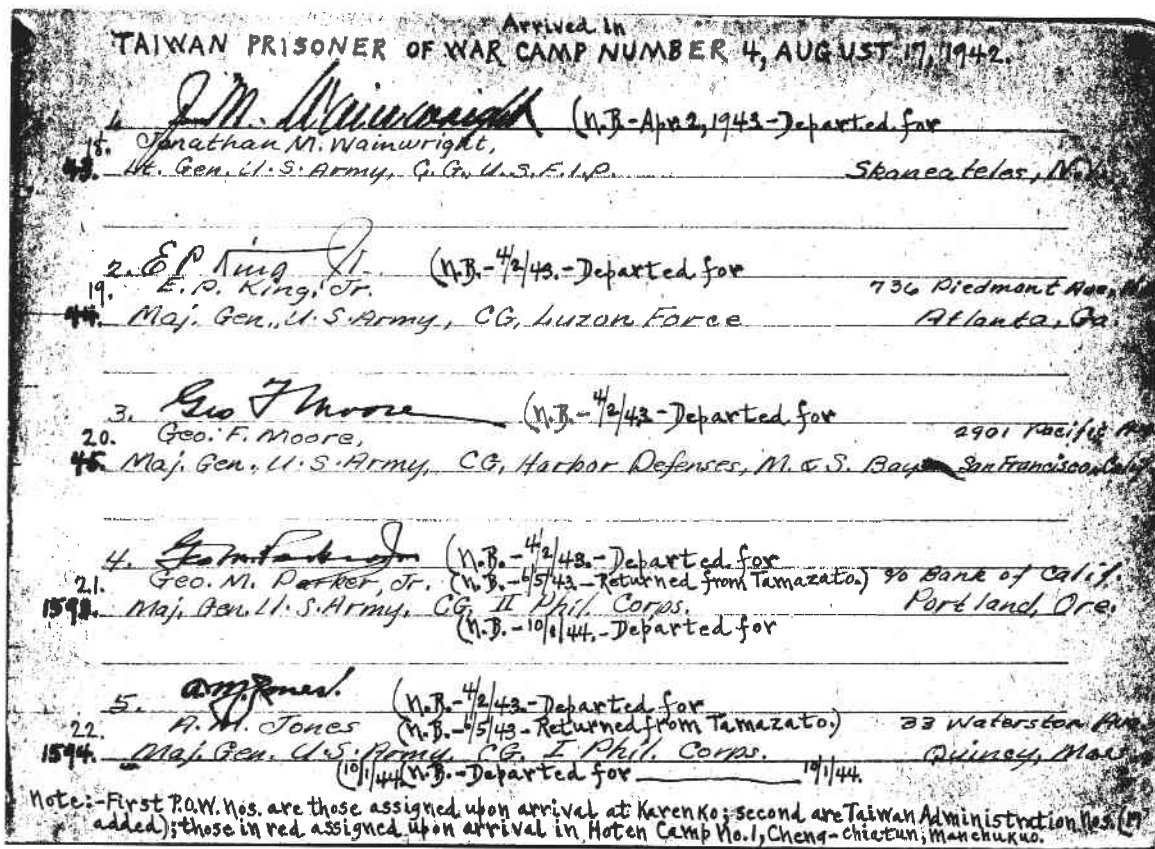 Arrived in
TAIWAN PRISONER OF WAR CAMP NUMBER 4, AUGUST 17, 1942.
1. J. M. Wainwright (N.B.-Apr. 2, 1943-Departed for
18. Jonathan M. Wainwright,
43. Lt. Gen. U.S. Army, C.G., U.S.F.I.P. Skaneateles, N.Y.
2. E P King Jr. (N.B.-4/2/43.-Departed for
19. E. P. King, Jr. 736 Piedmont Ave,
44. Maj. Gen., U.S. Army, CG, Luzon Force Atlanta, Ga.
3. Geo F Moore (N.B.-4/2/43-Departed for
20. Geo. F. Moore, 2901 Pacific Ave
45. Maj. Gen., U.S. Army, CG, Harbor Defenses, M. & S. Bay San Francisco, Calif.
4. Geo M. Parker Jr (N.B.-4/2/43.-Departed for
21. Geo. M. Parker, Jr. (N.B.-6/5/43-Returned from Tamazato.) % Bank of Calif.
Maj. Gen. U.S. Army, CG, II Phil. Corps. Portland, Ore.
(N.B.-10/1/44.-Departed for
5. A. M. Jones. (N.B.-4/2/43.-Departed for
22. A. M. Jones (N.B.-6/5/43-Returned from Tamazato.) 33 Waterston Ave
1594. Maj. Gen. U.S. Army, CG, I Phil. Corps. Quincy, Mass
(10/1/44 (N.B.-Departed for 10/1/44.
Note:-First P.O.W. Nos. are those assigned upon arrival at Karenko; second are Taiwan Administration Nos. (17
added); those in red assigned upon arrival in Hoten Camp No. 1, Cheng-chiatun, Manchukuo.